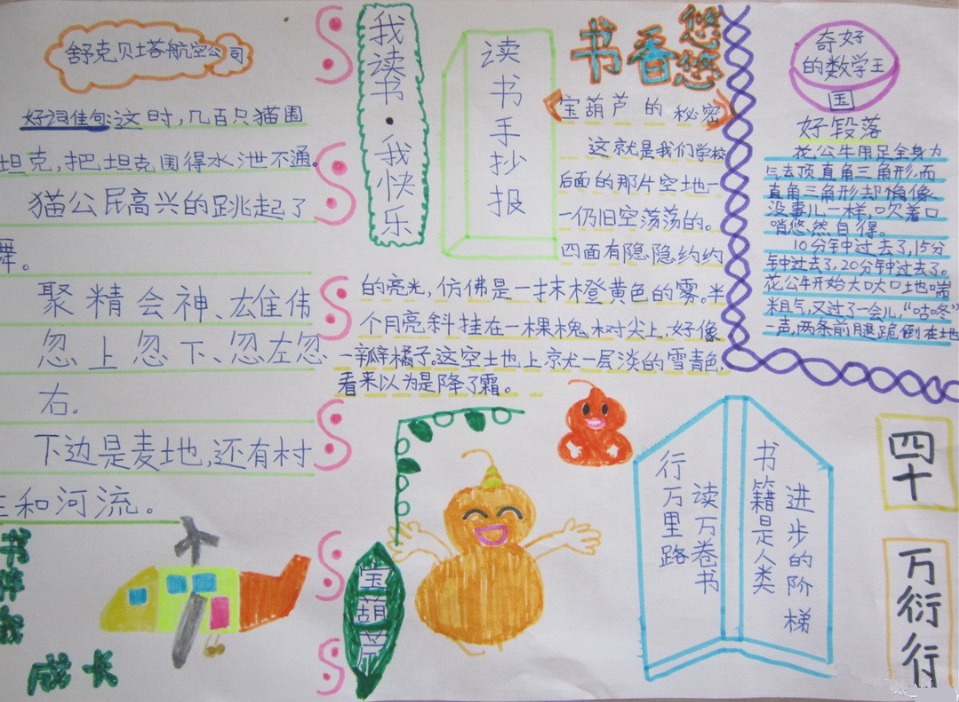 舒克贝塔航空公司
好词佳句:这时,几百只猫围
坦克,把坦克围得水泄不通。
猫公民高兴的跳起了
舞。
聚精会神、雄伟
忽上忽下、忽左忽
右。
下边是麦地,还有村
庄和河流。
书伴我
成长
我读书·我快乐
读书手抄报
书香悠悠
宝葫芦的秘密
这就是我们学校
后面的那片空地一
一仍旧空荡荡的。
四面有隐隐约约
的亮光,仿佛是一抹橙黄色的雾。半
个月亮斜挂在一棵槐树尖上,好像
一瓣橘子。这空土地上亮尤一层淡的雪青色,
看来以为是降了霜。
宝葫芦
奇妙
的数学王
国
好段落
花公牛用足全身力
去顶直角三角形,而
直角三角形却偏像
没事儿一样,吹着口
哨悠然自得。
10分钟过去了,15分
钟过去了,20分钟过去了。
花公牛开始大口大口地喘
粗气,又过了一会儿,“咕咚”
一声,两条前腿跪倒在地
行万里路
读万卷书
书籍是人类
进步的阶梯
四十
万衍行